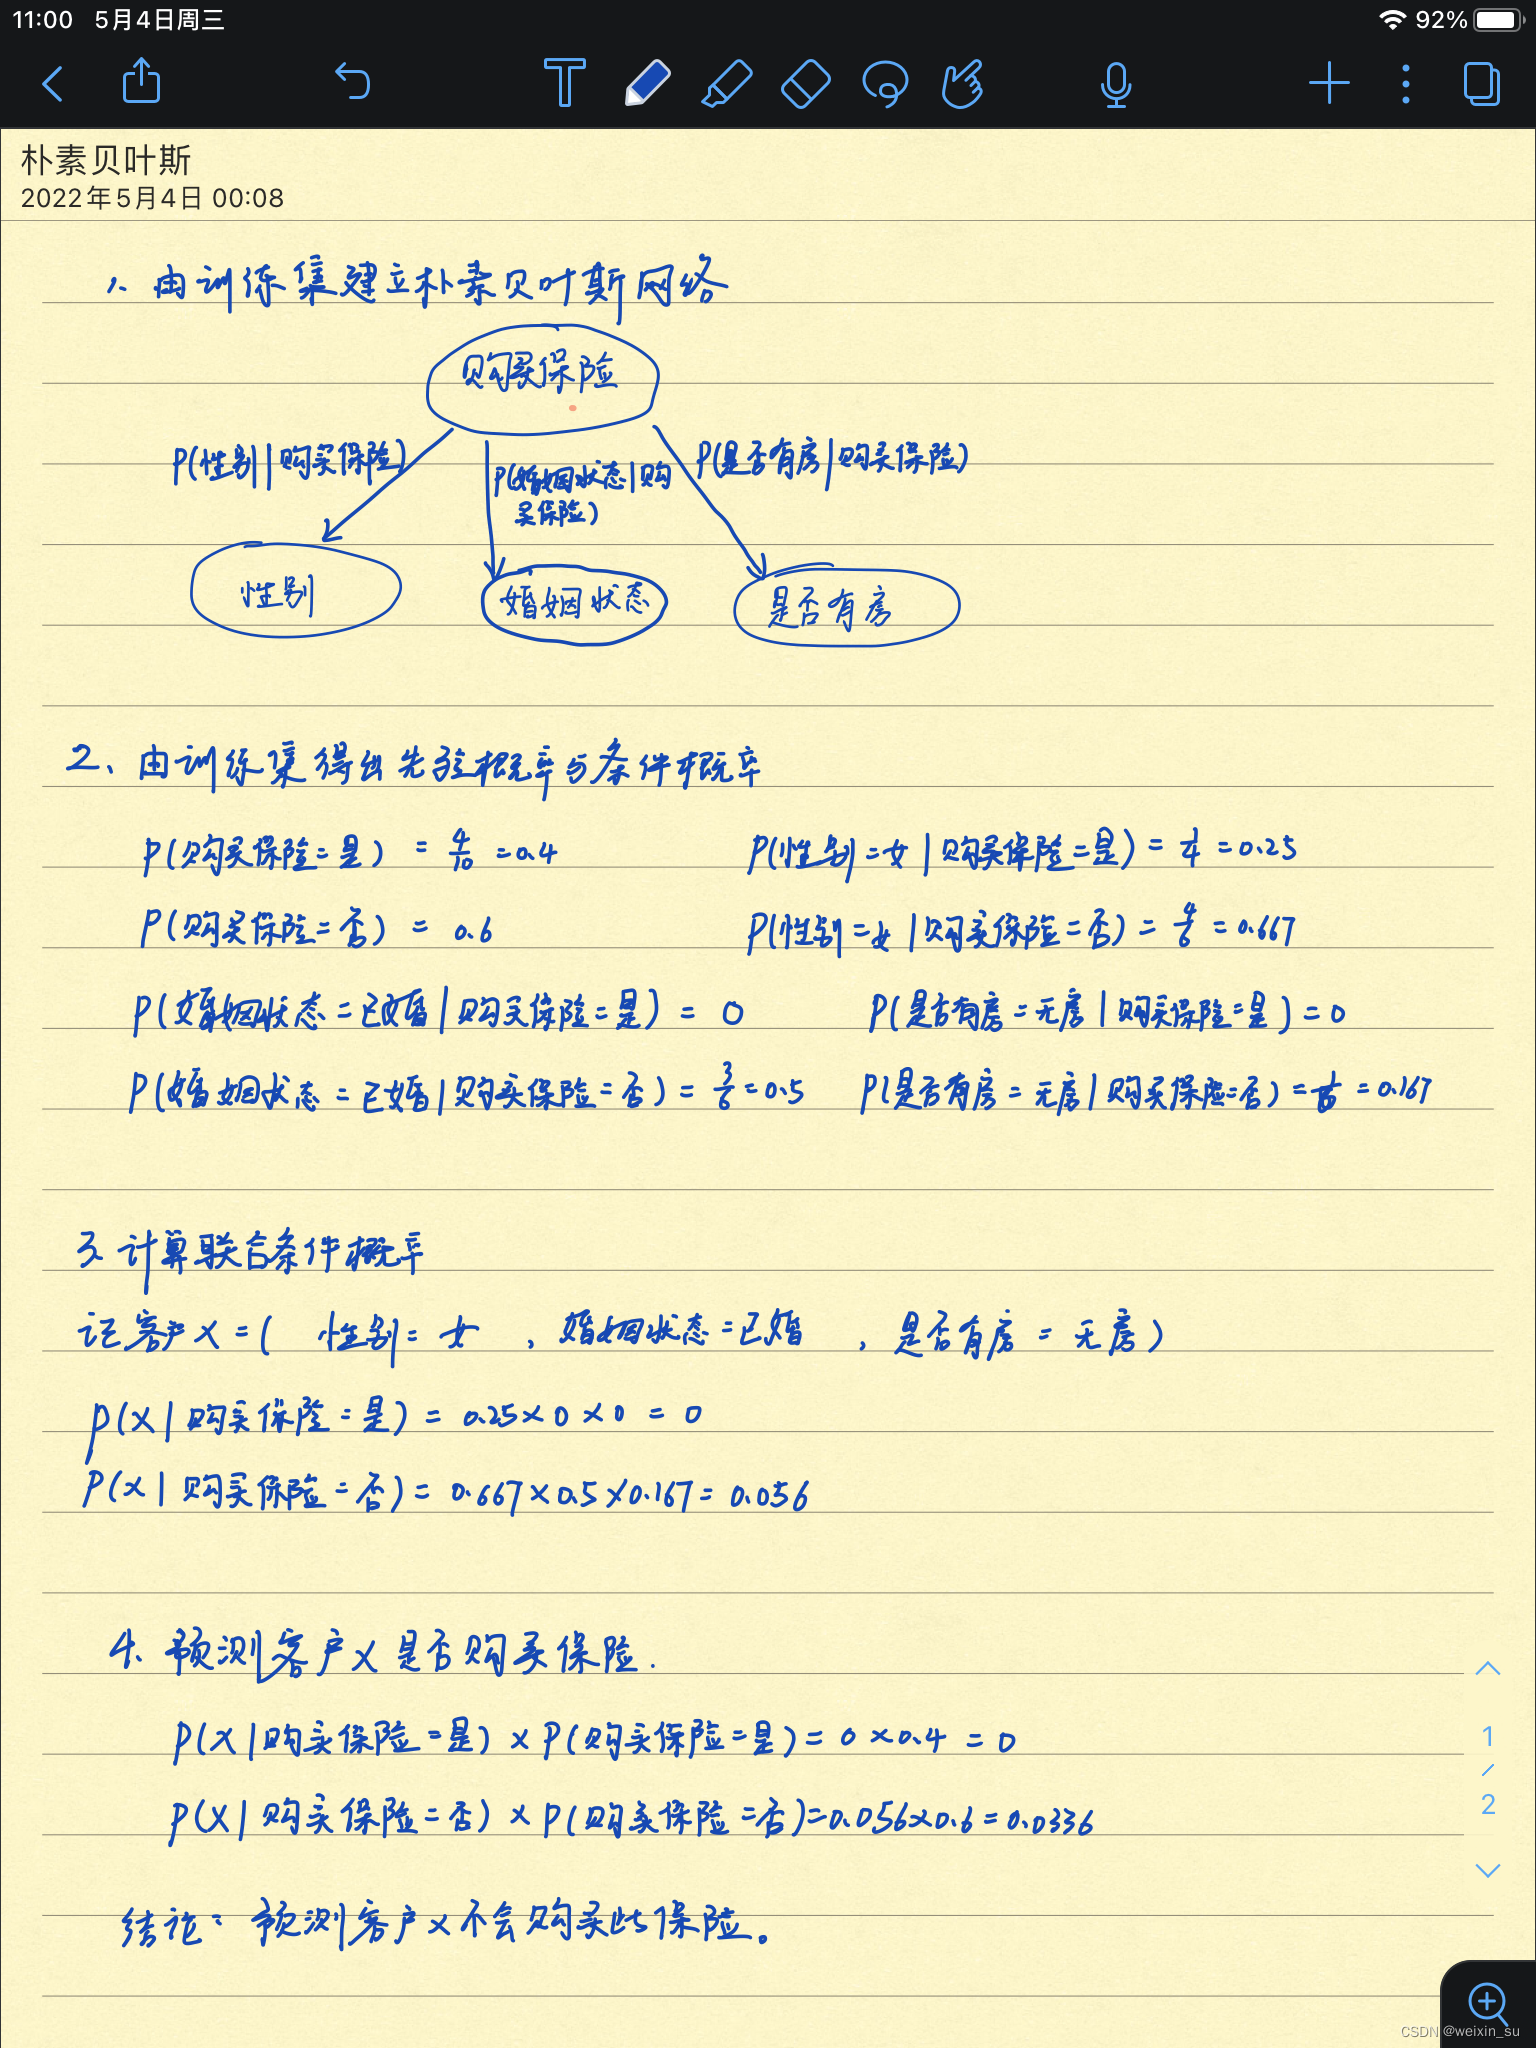 11:00 5月4日周三
92%
朴素贝叶斯
2022年5月4日 00:08
1、由训练集建立朴素贝叶斯网络
购买保险
P(性别|购买保险)
P(婚姻状态|购
买保险)
P(是否有房|购买保险)
性别
婚姻状态
是否有房
2、由训练集得出先验概率与条件概率
P(购买保险=是) = 4/10 = 0.4 P(性别=女|购买保险=是) = 1/4 = 0.25
P(购买保险=否) = 0.6 P(性别=女|购买保险=否) = 4/6 = 0.667
P(婚姻状态=已婚|购买保险=是) = 0 P(是否有房=无房|购买保险=是) = 0
P(婚姻状态=已婚|购买保险=否) = 3/6 = 0.5 P(是否有房=无房|购买保险=否) = 1/6 = 0.167
3、计算联合条件概率
记客户X=( 性别=女 , 婚姻状态=已婚 , 是否有房=无房)
P(X|购买保险=是) = 0.25×0×0 = 0
P(X|购买保险=否) = 0.667×0.5×0.167 = 0.056
4、预测客户X是否购买保险.
P(X|购买保险=是) × P(购买保险=是) = 0×0.4 = 0
P(X|购买保险=否) × P(购买保险=否)=0.056×0.6=0.0336
结论:预测客户X不会购买此保险。
1
/
2
CSDN @weixin_su